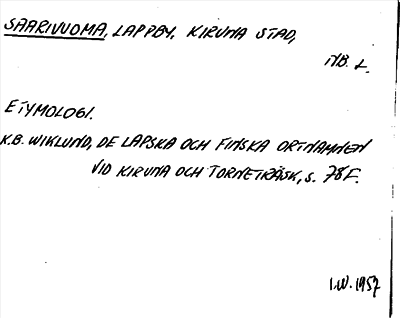 SAARIVUOMA, LAPPBY, KIRUNA STAD,
NB. L.
ETYMOLOGI.
K.B. WIKLUND, DE LAPSKA OCH FINSKA ORTNAMNEN
VID KIRUNA OCH TORNETRÄSK, S. 78F.
I.W. 1957